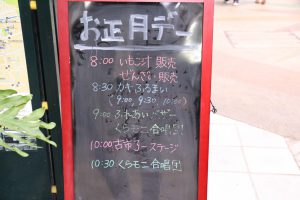 お正月デー
8:00 いちご汁 販売
ぜんざい販売
8:30 カキ ふるまい
(9:00, 9:30, 10:00)
9:00 ふれあいバザー
くらモニ 合唱団
10:00 古市了一ステージ
10:30 くらモニ 合唱団